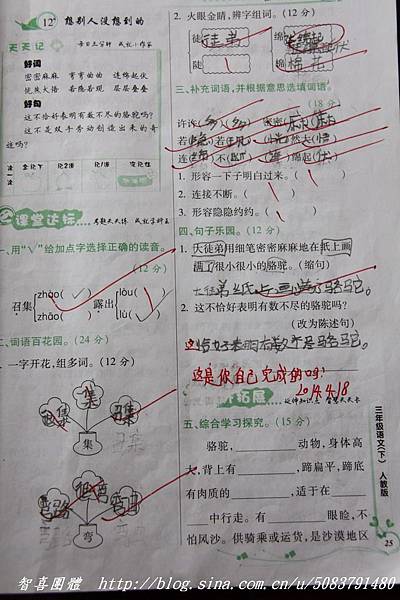 12 想别人没想到的
天天记 每日三分钟 成就小作家
好词
密密麻麻 弯弯曲曲 连绵起伏
恍然大悟 若隐若现 层层叠叠
好句
这不恰好表明有数不尽的骆驼吗?
这不是双手劳动创造出来的奇
迹吗?
课堂达标
一、用“√”给加点字选择正确的读音。
(12分)
召集 zhāo( ) zhào( √ ) 露出 lòu( √ ) lù( )
二、词语百花园。(24分)
1.一字开花,组多词。(12分)
集
弯
2. 火眼金睛,辨字组词。(12分)
徒 徒弟 绵
陡 棉 棉花
三、补充词语,并根据意思选填词语。
(18分)
1. 形容一下子明白过来。( )
2. 连接不断。( )
3. 形容隐隐约约。( )
四、句子乐园。(14分)
1. 大徒弟用细笔密密麻麻地在纸上画
满了很小很小的骆驼。(缩句)
2. 这不恰好表明有数不尽的骆驼吗?
(改为陈述句)
这恰好表明有数不尽骆驼。
这是你自己完成的吗?
2014.4.18
拓展
五、综合学习探究。(15分)
骆驼,________动物,身体高
大,背上有________,蹄扁平,蹄底
有肉质的________,适于在________
________中行走。有________眼睑,不
怕风沙。供骑乘或运货,是沙漠地区
三年级语文(下) 人教版
25
智喜團體 http://blog.sina.com.cn/u/5083791480